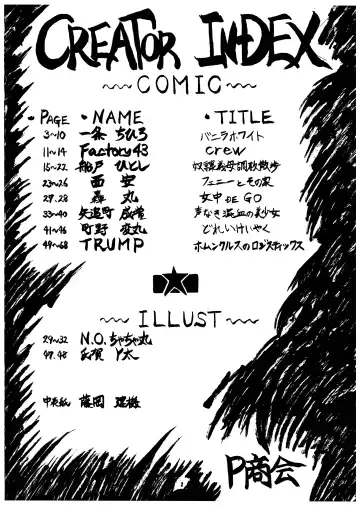 CREATOR INDEX
~~COMIC~~
・PAGE ・NAME ・TITLE
3~10 一条 ちひろ バニラホワイト
11~14 Factory43 crew
15~22 船戸 ひとし 奴隷義母調教散歩
23~26 西 安
29.28 轟 丸 女中 DE GO
33~40 矢追町 成増 声なき混血の美少女
41~46 町野 変丸 どれいけいやく
49~68 TRUMP ホムンクルスのロジスティックス
~~ILLUST~~
29~32 N.O.ちゃちゃ丸
47.48 氏賀 Y太
中表紙 藤岡
P商会